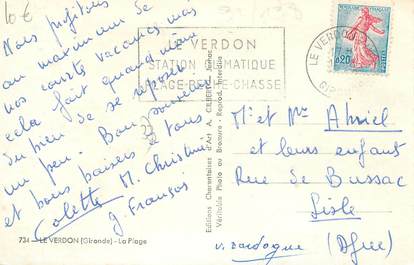 10 €
Nous profitons
au maximum de
nos courtes vacances mais
cela fait quand même
du bien de se reposer
un peu. Bon souvenir
et bons baisers à tous
Colette M. Christine
J. François
734 - LE VERDON (Gironde) - La Plage
Editions Charentaises d'Art A.
Véritable Photo au Bromure - Reprod. Interdite
LE VERDON
STATION CLIMATIQUE
PLAGE-PECHE-CHASSE
LE VERDON
REPUBLIQUE FRANÇAISE
0,20
POSTES
M et Me Abriel
et leurs enfants
Rue de Bussac
Lisle
v. Dordogne